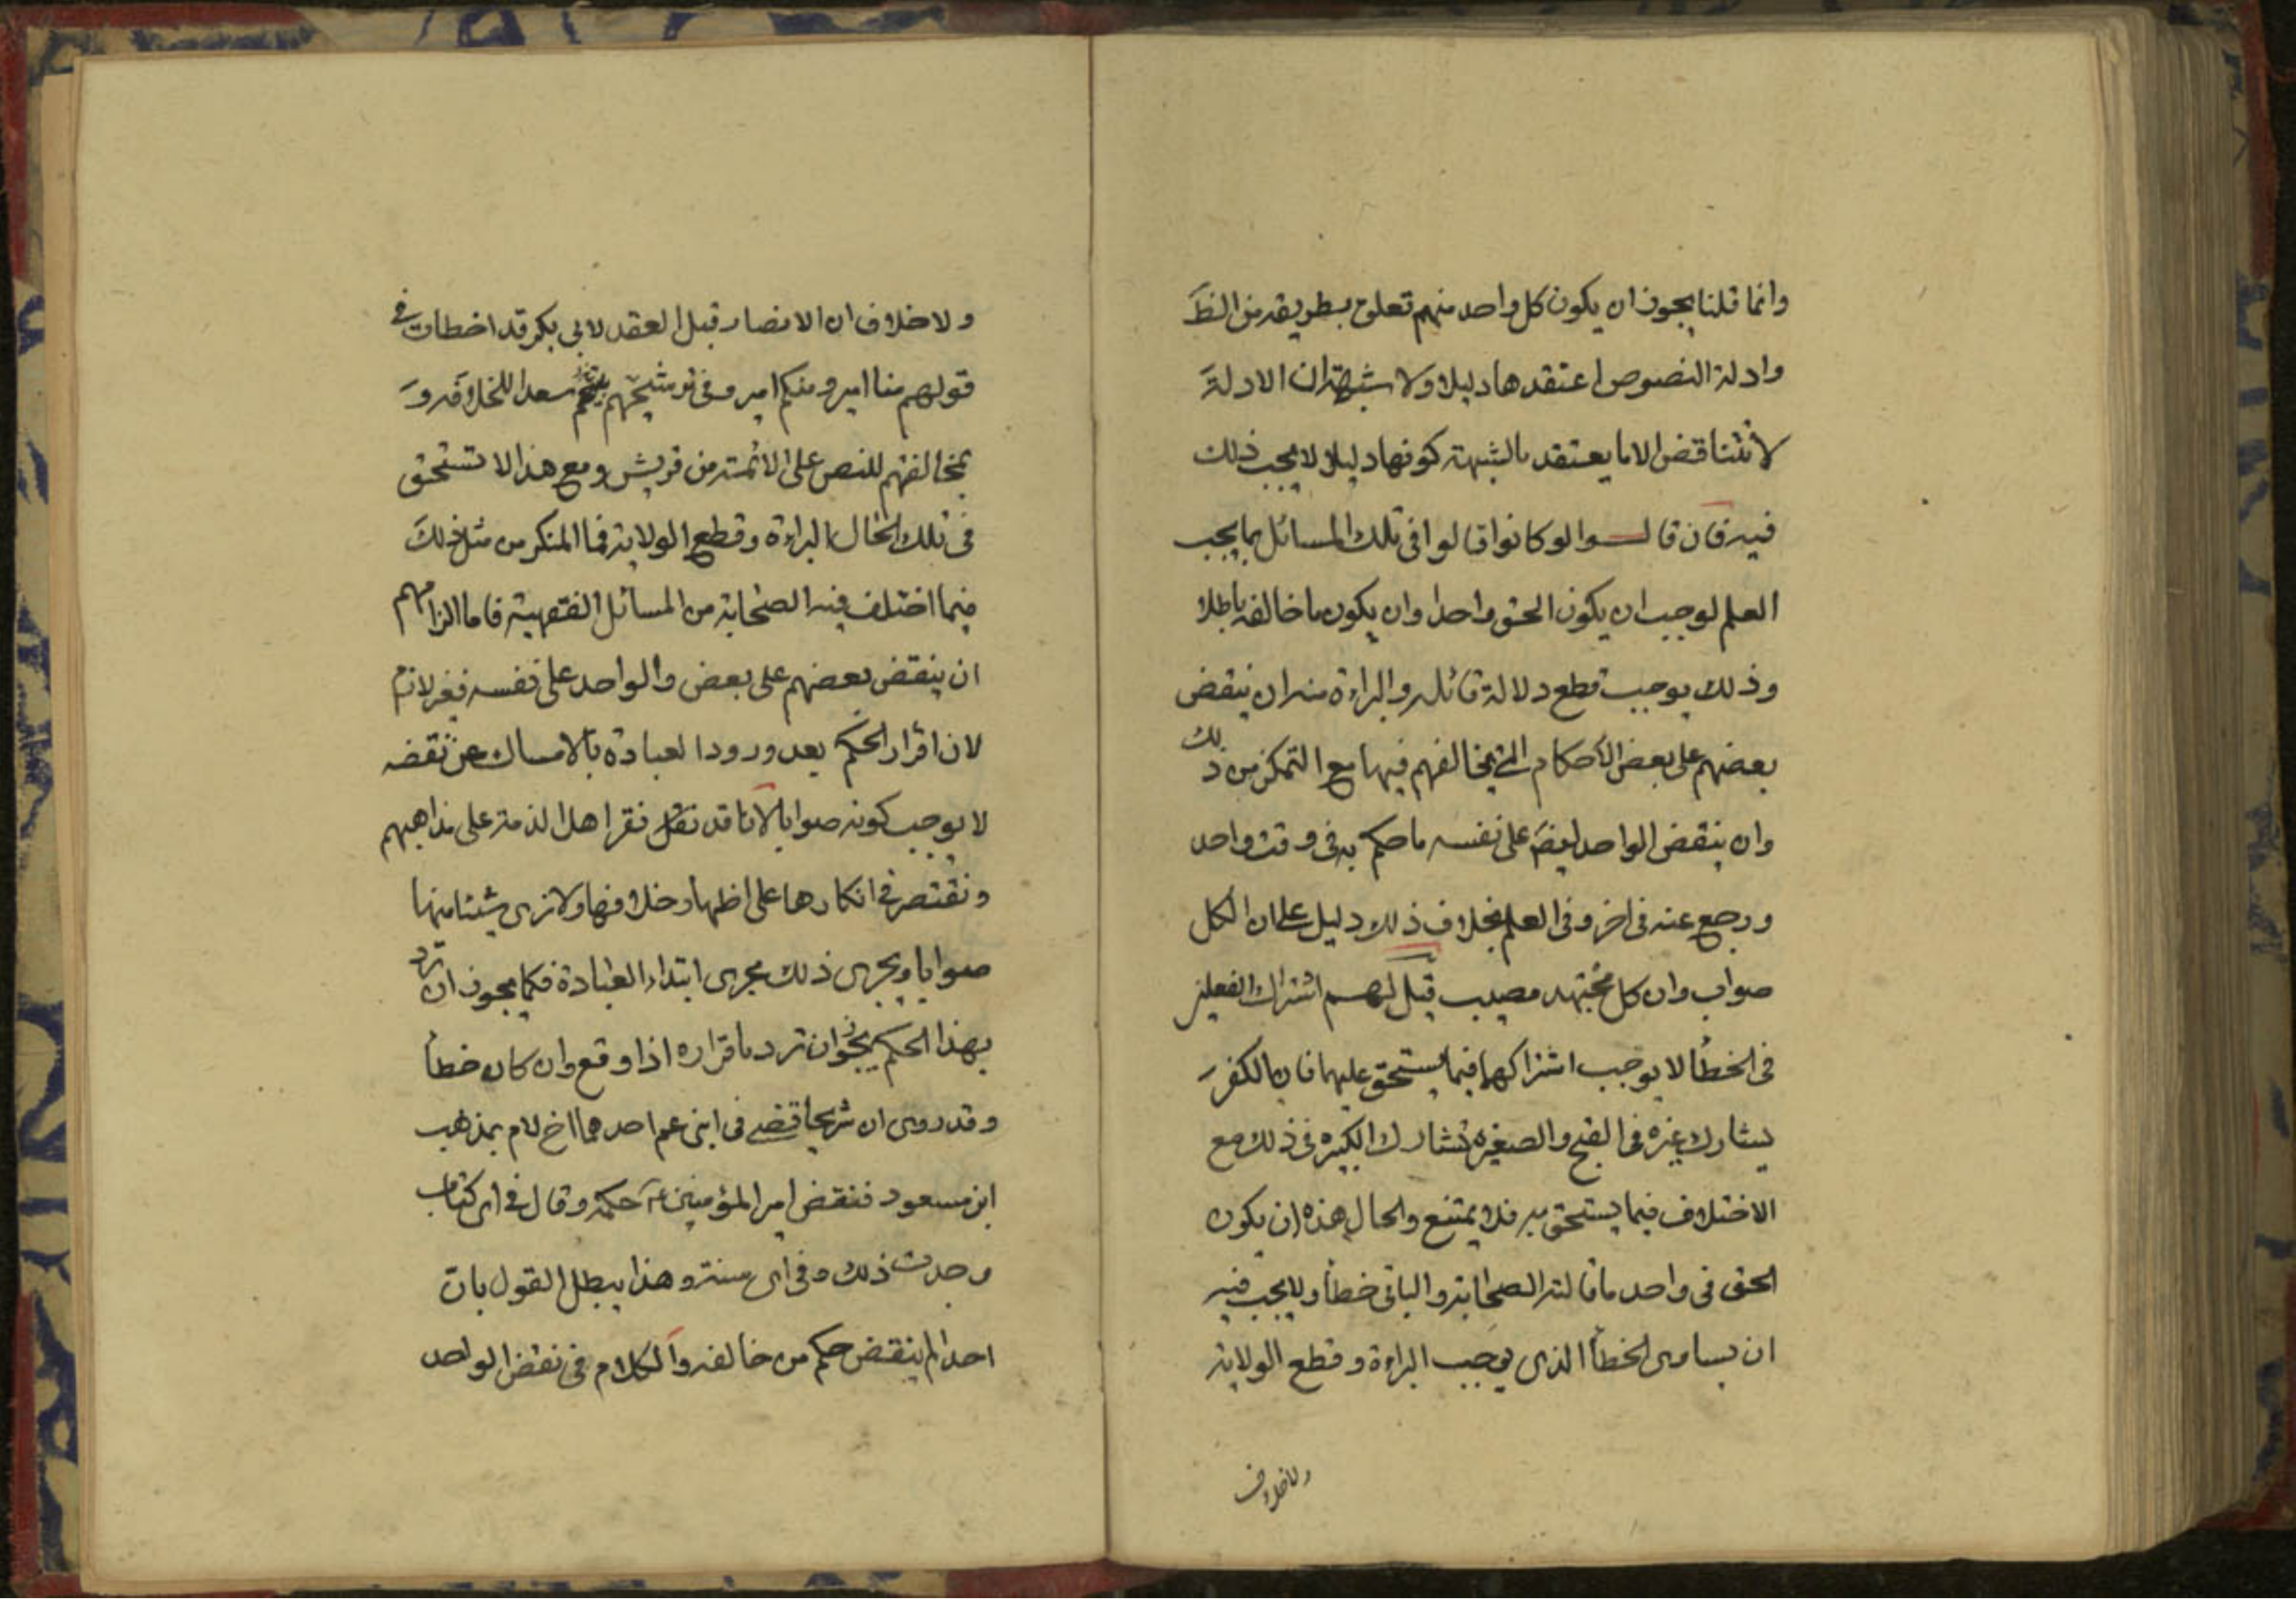 وانما قلنا يجوز ان يكون كل واحد منهم تعلق بطريقة من الظ
وادلة النصوص اعتقدها دليلا ولا شبهة ان الادلة
لا تتناقض الا ما يعتقد بالشبهة كونها دليلا لا يجب ذلك
فيه فان قالوا لو كانوا قالوا في تلك المسائل بما يجب
العلم لوجب ان يكون الحق واحدا وان يكون ما خالفه باطلا
وذلك يوجب قطع دلالة قائله والبراءة منه ان ينقض
بعضهم على بعض الأحكام التي يخالفهم فيها مع التمكن من ذلك
وان ينقض الواحد ايضا على نفسه ما حكم به في وقت واحد
ورجع عنه في اخر وفي العلم بخلاف ذلك دليل على ان الكل
صواب وان كل مجتهد مصيب قيل لهم اشتراك الفعلين
في الخطأ لا يوجب اشتراكهما فيما يستحق عليهما فان الكفر
يشارك غيره في القبح والصغيرة تشارك الكبيرة في ذلك مع
الاختلاف فيما يستحق به فلا يمتنع والحال هذه ان يكون
الحق في واحد ما قالته الصحابة والباقي خطأ ولا يجب فيه
ان يساوى الخطأ الذى يوجب البراءة وقطع الولاية
ولا خلاف
ولا خلاف ان الانصار قبل العقد لابي بكر قد اخطات في
قولهم منا امير ومنكم امير وفي ترشيحهم سعدا للخلافة و
بمخالفتهم للنص على الائمة من قريش ومع هذا لا تستحق
في تلك الحال البراءة وقطع الولاية فما المنكر من مثل ذلك
فيما اختلف فيه الصحابة من المسائل الفقهية فاما الزامهم
ان ينقض بعضهم على بعض والواحد على نفسه فغير لازم
لان اقرار الحكم بعد ورود العبادة بالامساك عن نقضه
لا يوجب كونه صوابا لانا قد نقر اهل الذمة على مذاهبهم
ونقتصر في انكارها على اظهار خلافها ولا نرى شيئا منها
صوابا ويجرى ذلك مجرى ابتداء العبادة فكما يجوز ان ترد
بهذا الحكم يجوز ان ترد باقراره اذا وقع وان كان خطأ
وقد روى ان شريحا قضى في ابنى عم احدهما اخ لام بمذهب
ابن مسعود فنقض امير المؤمنين ع حكمه وقال في اى كتاب
وجدت ذلك وفي اى سنة وهذا يبطل القول بان
احدا لم ينقض حكم من خالفه والكلام في نقض الواحد